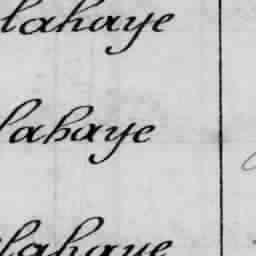 lahaye
lahaye
lahaye